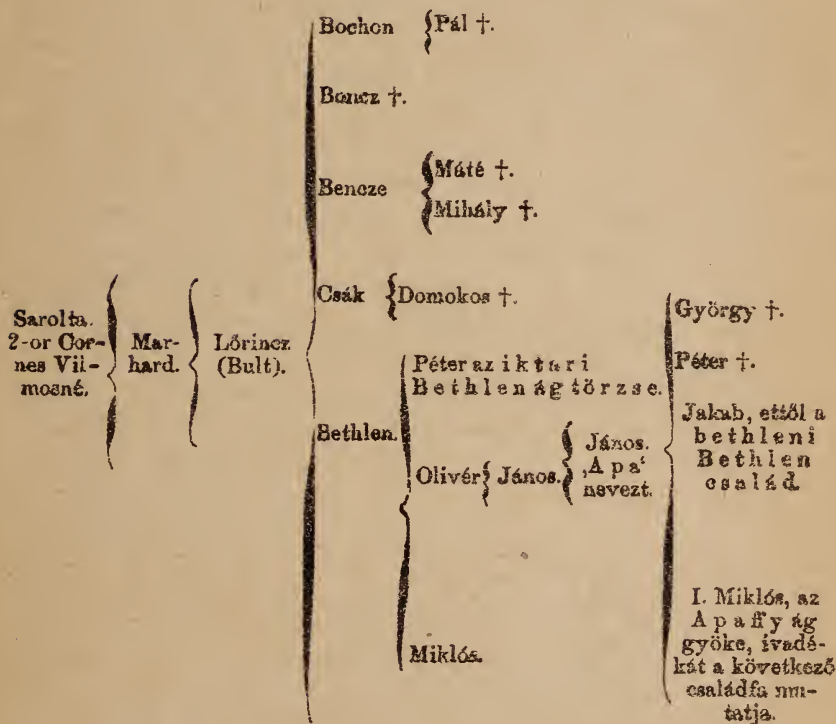 Sarolta.
2-or Cor-
nes Vil-
mosné.
Mar-
hard.
Lőrincz
(Bult).
Bochon
Pál †.
Boncz †.
Bencze
Máté †.
Mihály †.
Csák
Domokos †.
Bethlen.
Péter az iktari
Bethlen ág törzse.
Olivér
János.
János.
‚Apa‘
nevezt.
György †.
Péter †.
Jakab, ettől a
bethleni
Bethlen
család
I. Miklós, az
Apaffy ág
gyöke, ivadé-
kát a következő
családfa mu-
tatja.
Miklós.